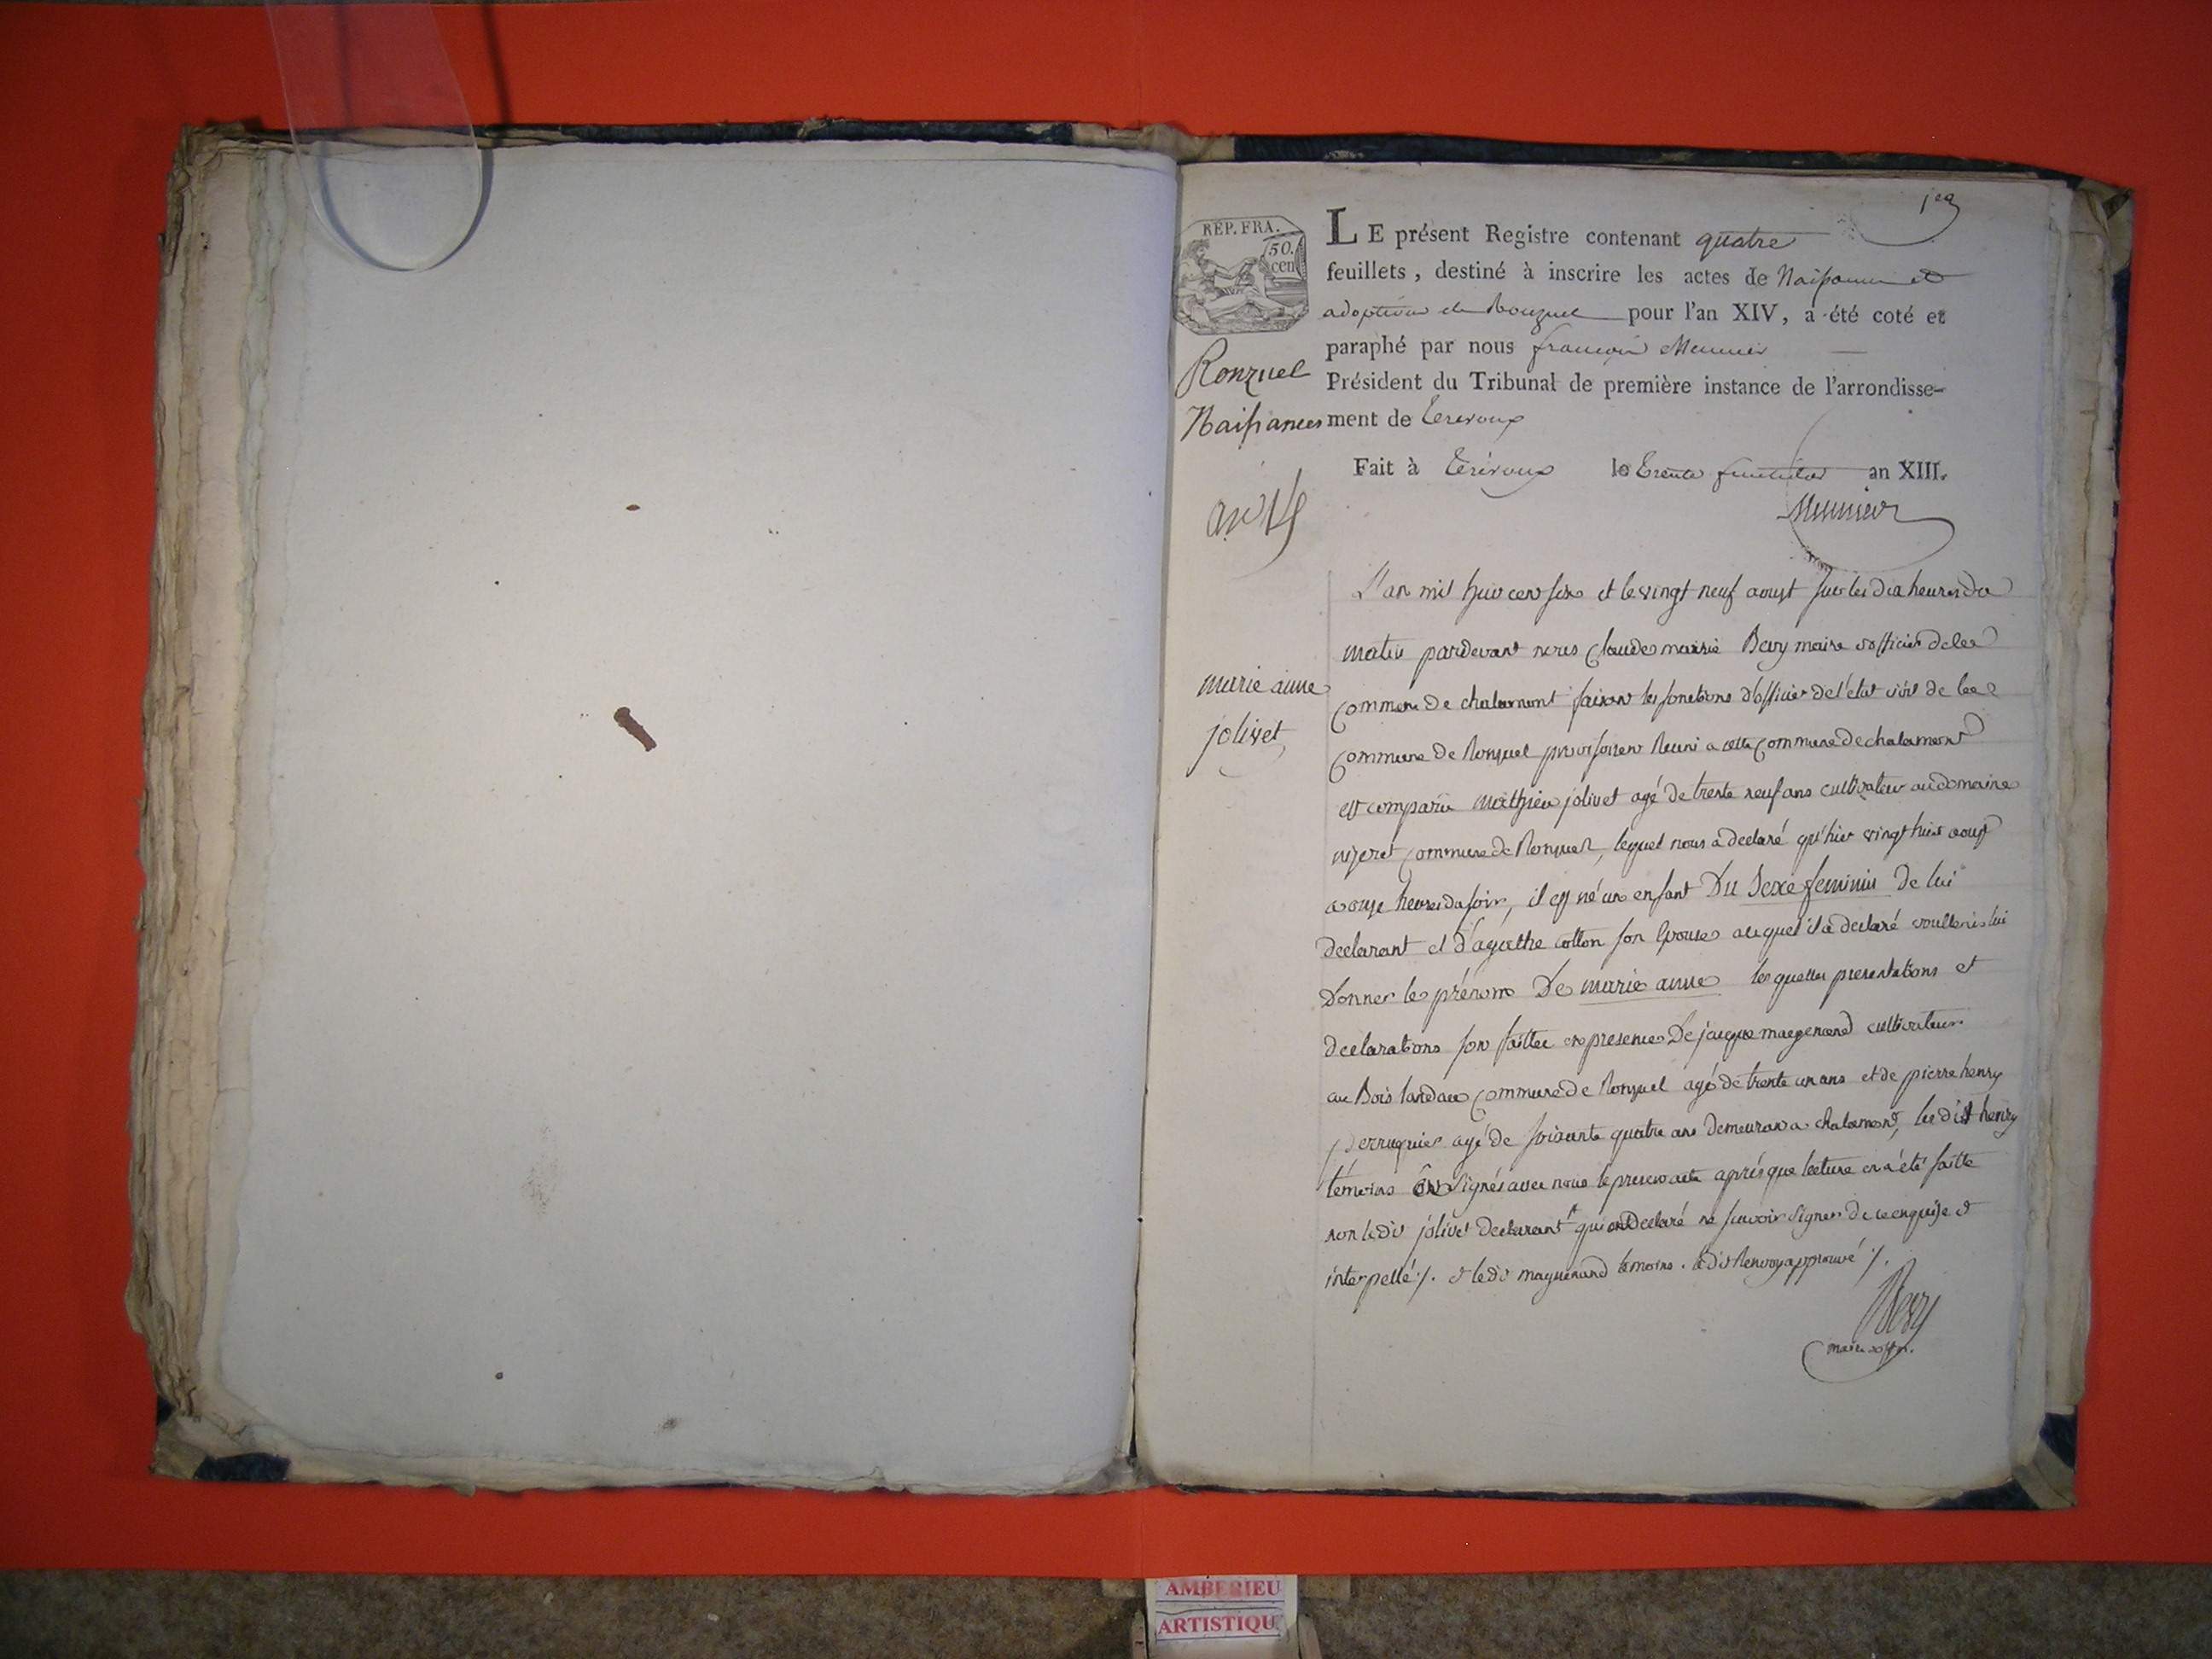 1er
REP. FRA.
50.
cen
LE présent Registre contenant quatre
feuillets, destiné à inscrire les actes de Naissance et
adoption de Ronzuel pour l'an XIV, a été coté et
paraphé par nous françois Meunier
Président du Tribunal de première instance de l'arrondisse-
ment de Trévoux
Fait à Trévoux le trente fructidor an XIII.
Meunier
Ronzuel
Naissances
an 14
marie anne
jolivet
L'an mil huit cent six et le vingt neuf aoust sur les dix heures du
matin pardevant nous Claude marie Bevy maire officier de la
commune de chalamont faisant les fonctions d'officier de l'état civil de la
commune de Ronzuel provisoirem reuni a cette commune de chalamont
est comparu mathieu jolivet agé de trente neuf ans cultivateur au domaine
commune de Ronzuel, lequel nous a declaré qu'hier vingt huit aoust
a onze heures du soir, il est né un enfant Du Sexe feminin de lui
declarant et d'agathe cotton son Epouse auquel il a declaré voulloir lui
donner le prénom De marie anne lesquelles presentations et
declarations son faittes en presence De jacque maguenand cultivateur
au Bois landau commune de Ronzuel agé de trente un ans et de pierre henry
perruquier agé de soixante quatre ans demeurant a chalamont, le dit henry
témoins on Signés avec nous le present acte aprés que lecture en a été faitte
non le dit jolivet declarant qui ont declaré ne scavoir signer de ce enquise et
interpellé ·/. et le dit maguenand témoins. le dit Renvoy approuvé ·/.
Bevy
maire off
AMBERIEU
ARTISTIQU